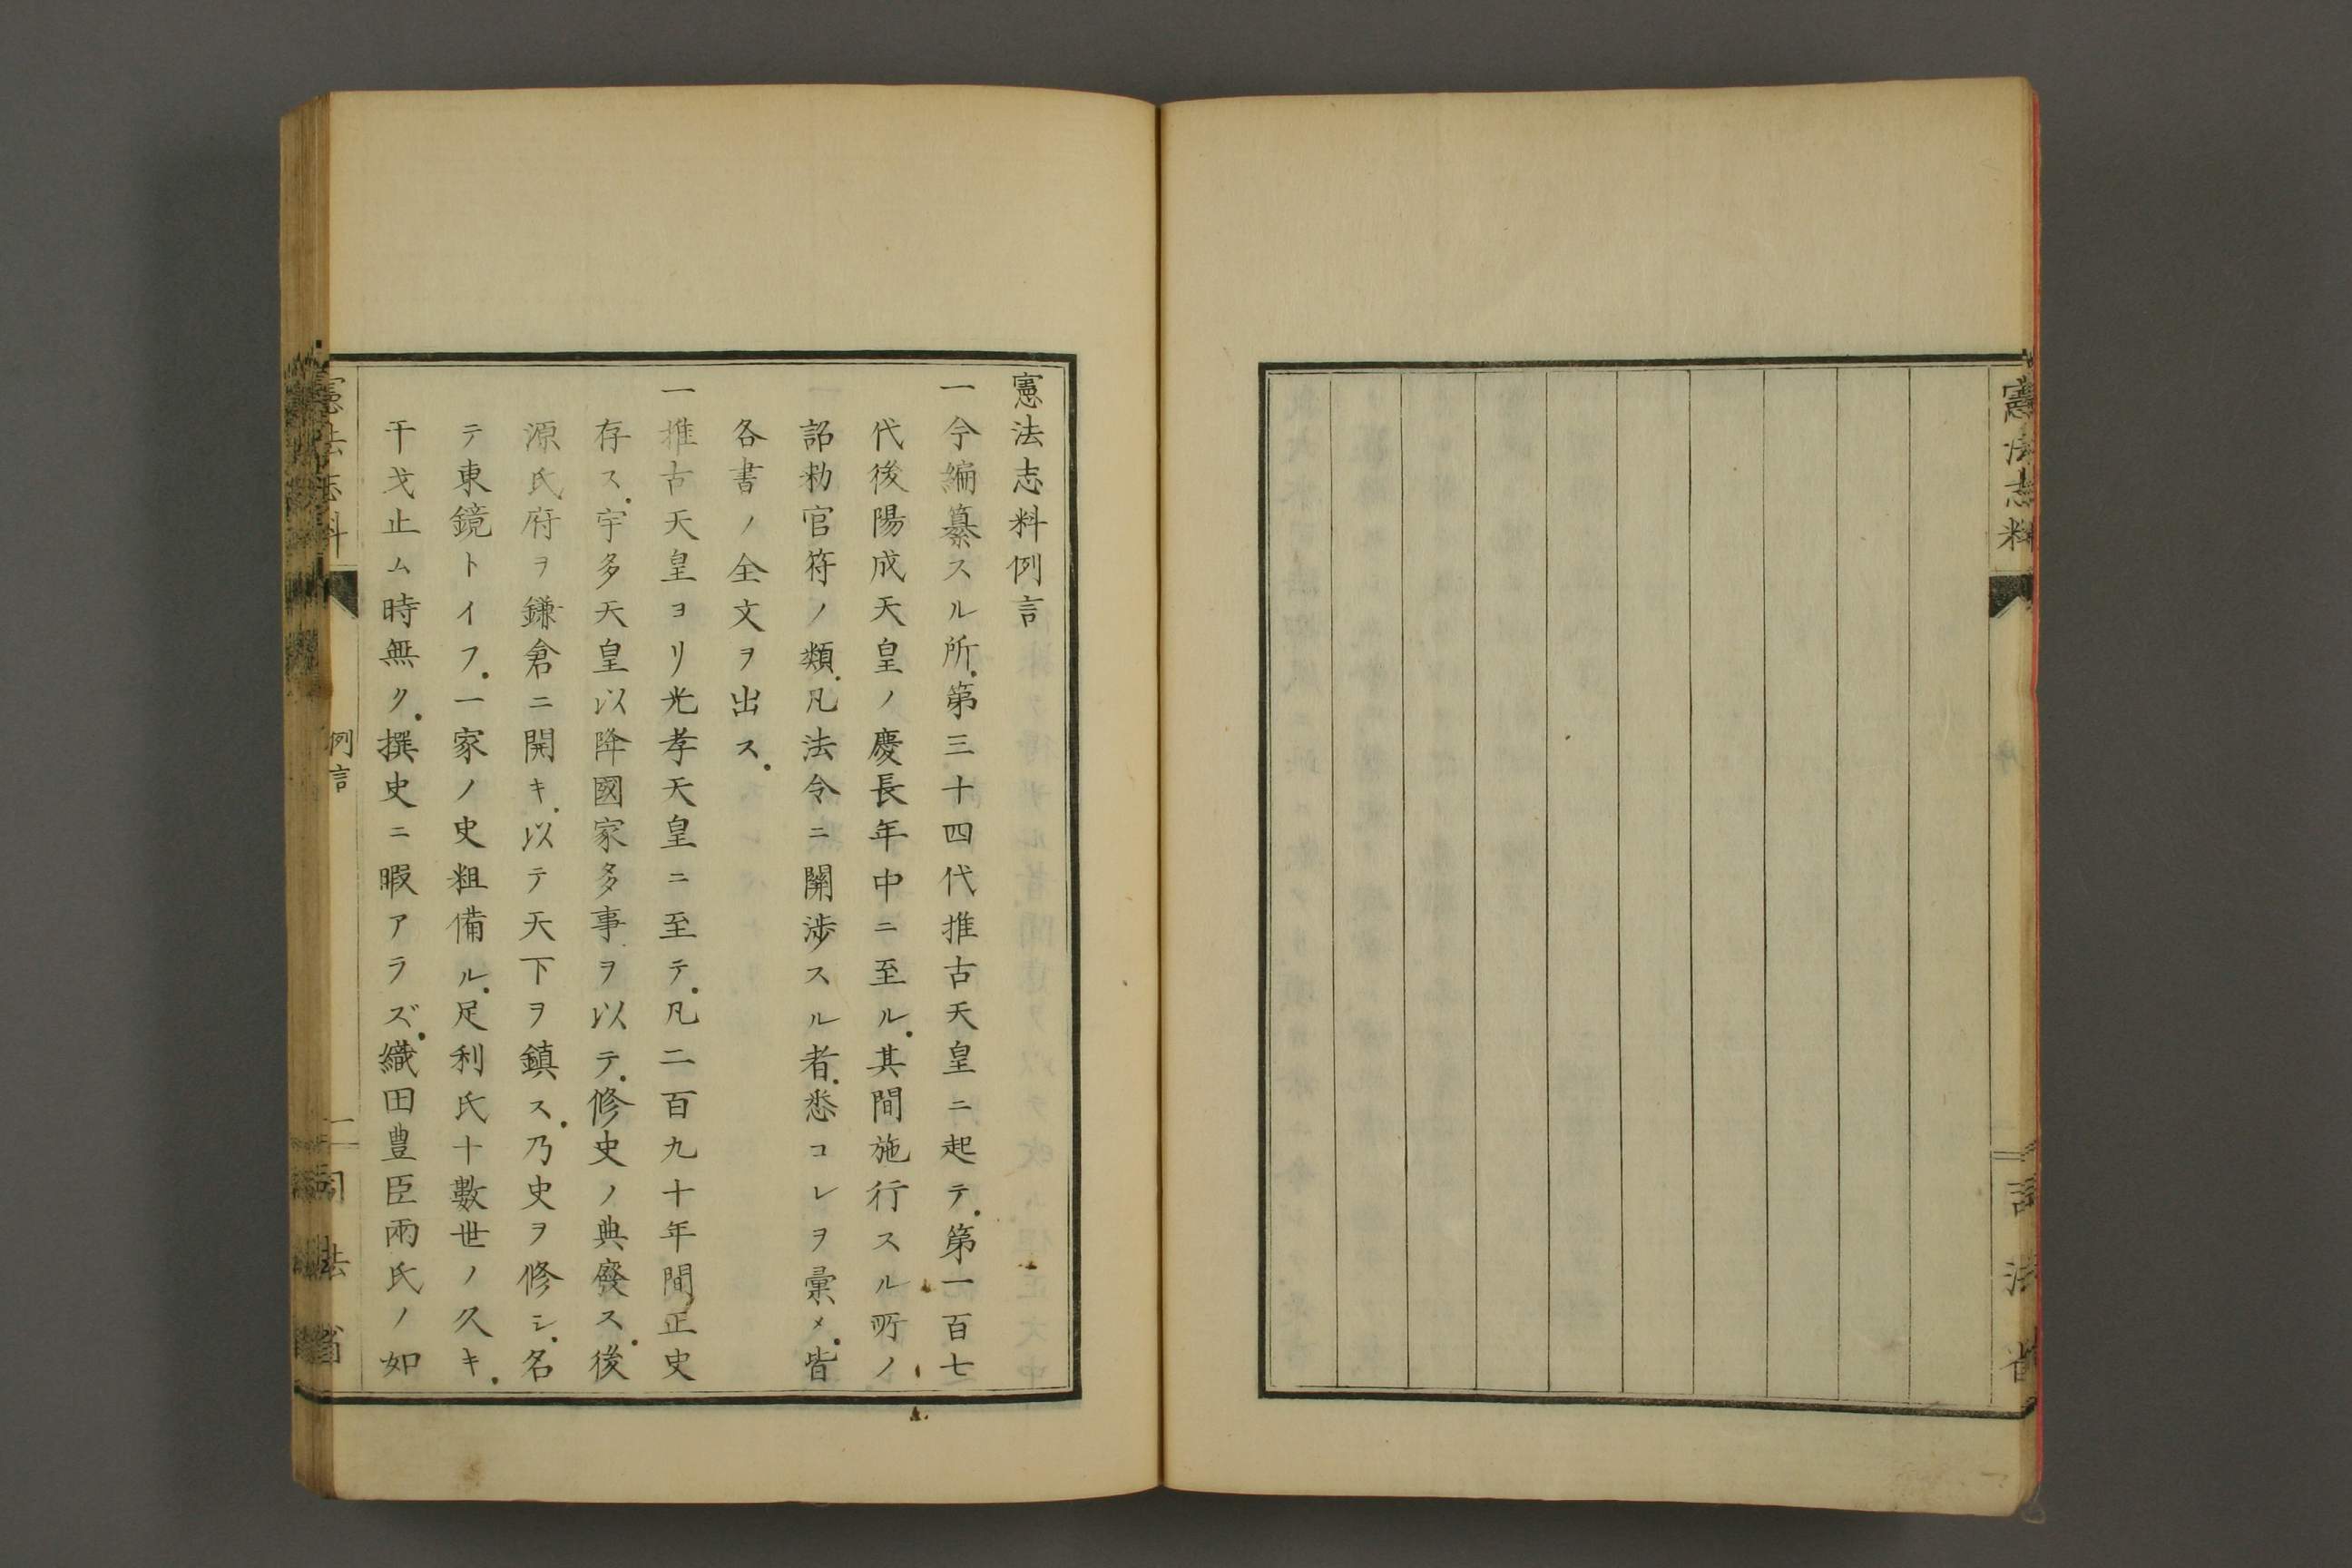 憲法志料
司法省
憲法志料例言
一今編纂スル所.第三十四代推古天皇ニ起テ.第一百七
代後陽成天皇ノ慶長年中ニ至ル.其間施行スル所ノ
詔勅官符ノ類.凡法令ニ関渉スル者.悉コレヲ彙メ.皆
各書ノ全文ヲ出ス.
一推古天皇ヨリ光孝天皇ニ至テ.凡二百九十年間正史
存ス.宇多天皇以降國家多事ヲ以テ.修史ノ典廢ス.後
源氏府ヲ鎌倉ニ開キ.以テ天下ヲ鎮ス.乃史ヲ修シ.名
テ東鏡トイフ.一家ノ史粗備ル.足利氏十數世ノ久キ.
干戈止ム時無ク.撰史ニ暇アラズ.織田豊臣兩氏ノ如
憲法志料
例言
一
司法省